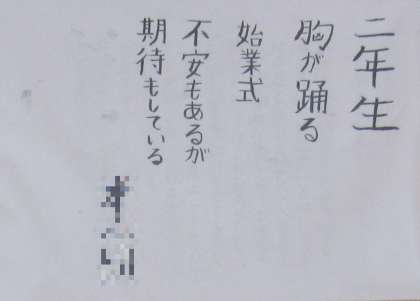 二年生
胸が踊る
始業式
不安もあるが
期待もしている